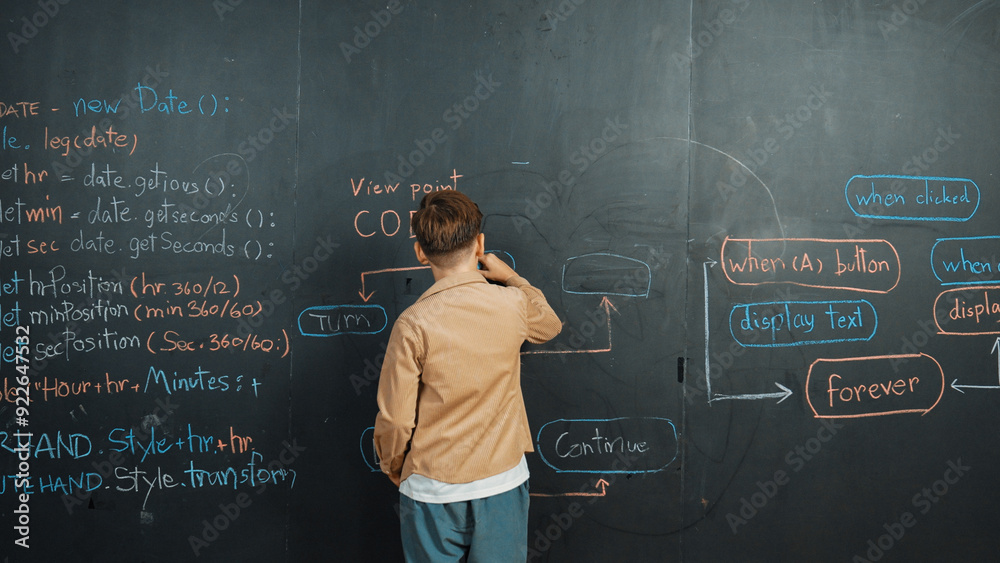 DATE - new Date():
le. leg(date)
et hr = date.getious():
let min = date.getseconds():
let sec date.getSeconds():
let hrPosition (hr 360/12)
let minPosition (min 360/60)
let secPosition (Sec. 360/60:)
log "Hour+hr+ Minutes: +
RHAND. Style+hr.+hr
UTEHAND. Style.transform
View point
COD
Turn
Continue
when clicked
when (A) button
display text
forever
when
display
Adobe Stock | #922647532
Adobe Stock